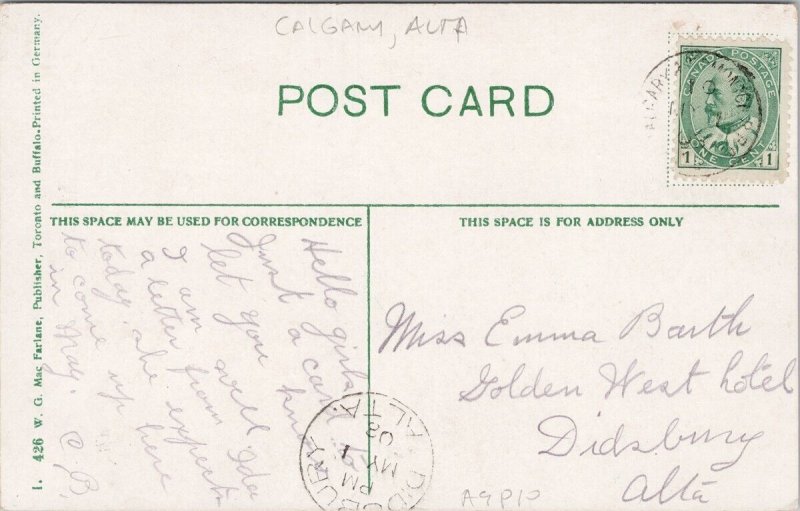 CALGARY, ALTA
POST CARD
CANADA POSTAGE
1 ONE CENT 1
THIS SPACE MAY BE USED FOR CORRESPONDENCE
THIS SPACE IS FOR ADDRESS ONLY
Hello girls
Just a card to
let you know
I am well Ida
a letter from
today she expects
to come up here
in May. C.B.
Miss Emma Barth
Golden West hotel
Didsbury
Alta
DIDSBURY
ALTA.
PM
MY 1
08
A9P10
I. 426 W. G. Mac Farlane, Publisher, Toronto and Buffalo.-Printed in Germany.